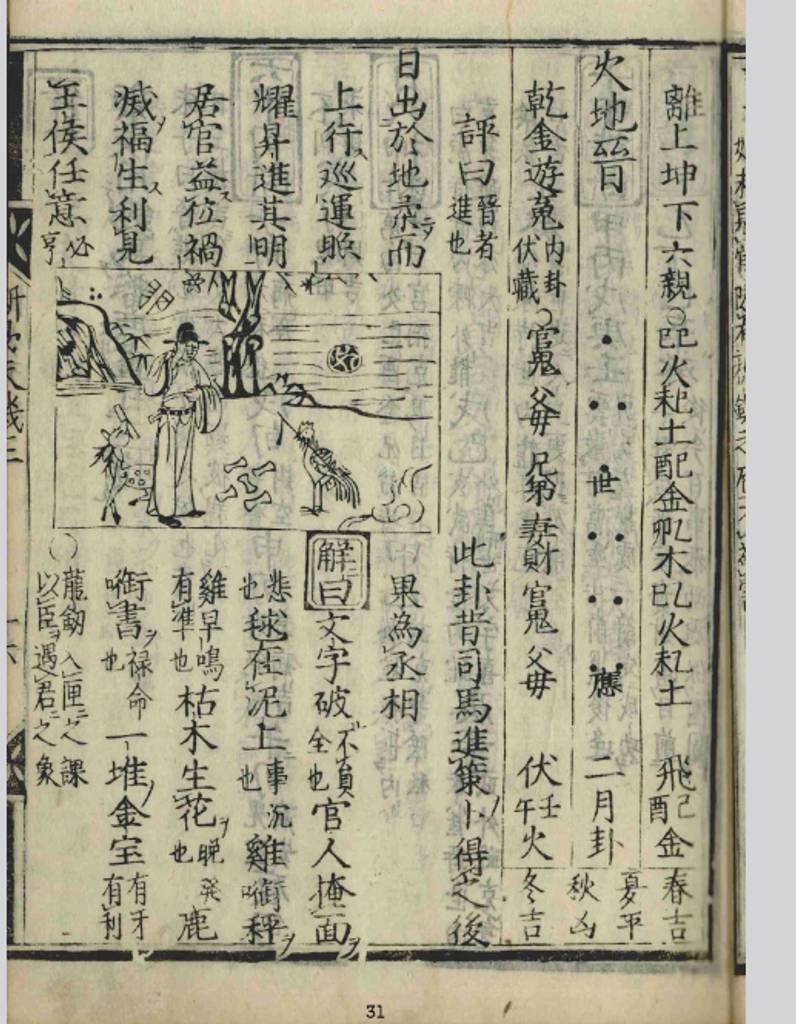 離上坤下六親○己巳火己未土己酉金乙卯木乙巳火乙未土 飛己酉金 春吉
火地晉 世 應 二月卦 夏平 秋凶
乾金遊䰟內卦伏藏○官鬼父母兄弟妻財官鬼父母 伏壬午火 冬吉
評曰晉者進也
日出於地 而
上行巡運照
耀昇進其明
居官益位禍
滅福生利見
王侯任意必亨
明
此卦昔司馬進策卜得之後
果為丞相
解曰文字破不員全也官人掩面
悲也毬在泥上事沉也雞銜秤
雞早鳴有準也枯木生花晚癸也鹿
銜書禄命也一堆金宝有牙有利
○龍劒入匣之課
以臣遇君之象
31